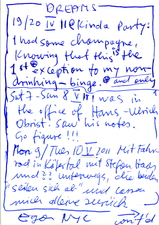 DREAMS
19/20 IV 11 @ Kinda Party:
I had some champagne,
Knowing that this is the
1st @ exception to my non-
drinking-binge. @ and only
Sat 7 Sun 8 V 11 I was in
the office of Hans-Ulrich
Obrist saw his notes.
Go figure!!!
Mon 9/Tues 10 V 2011 Mit Fahr-
rad in Käfertal mit Stefan
und ?? unterwegs, die beiden
"seilen sich ab" und lassen
mich alleine zurück
NYC cont'd